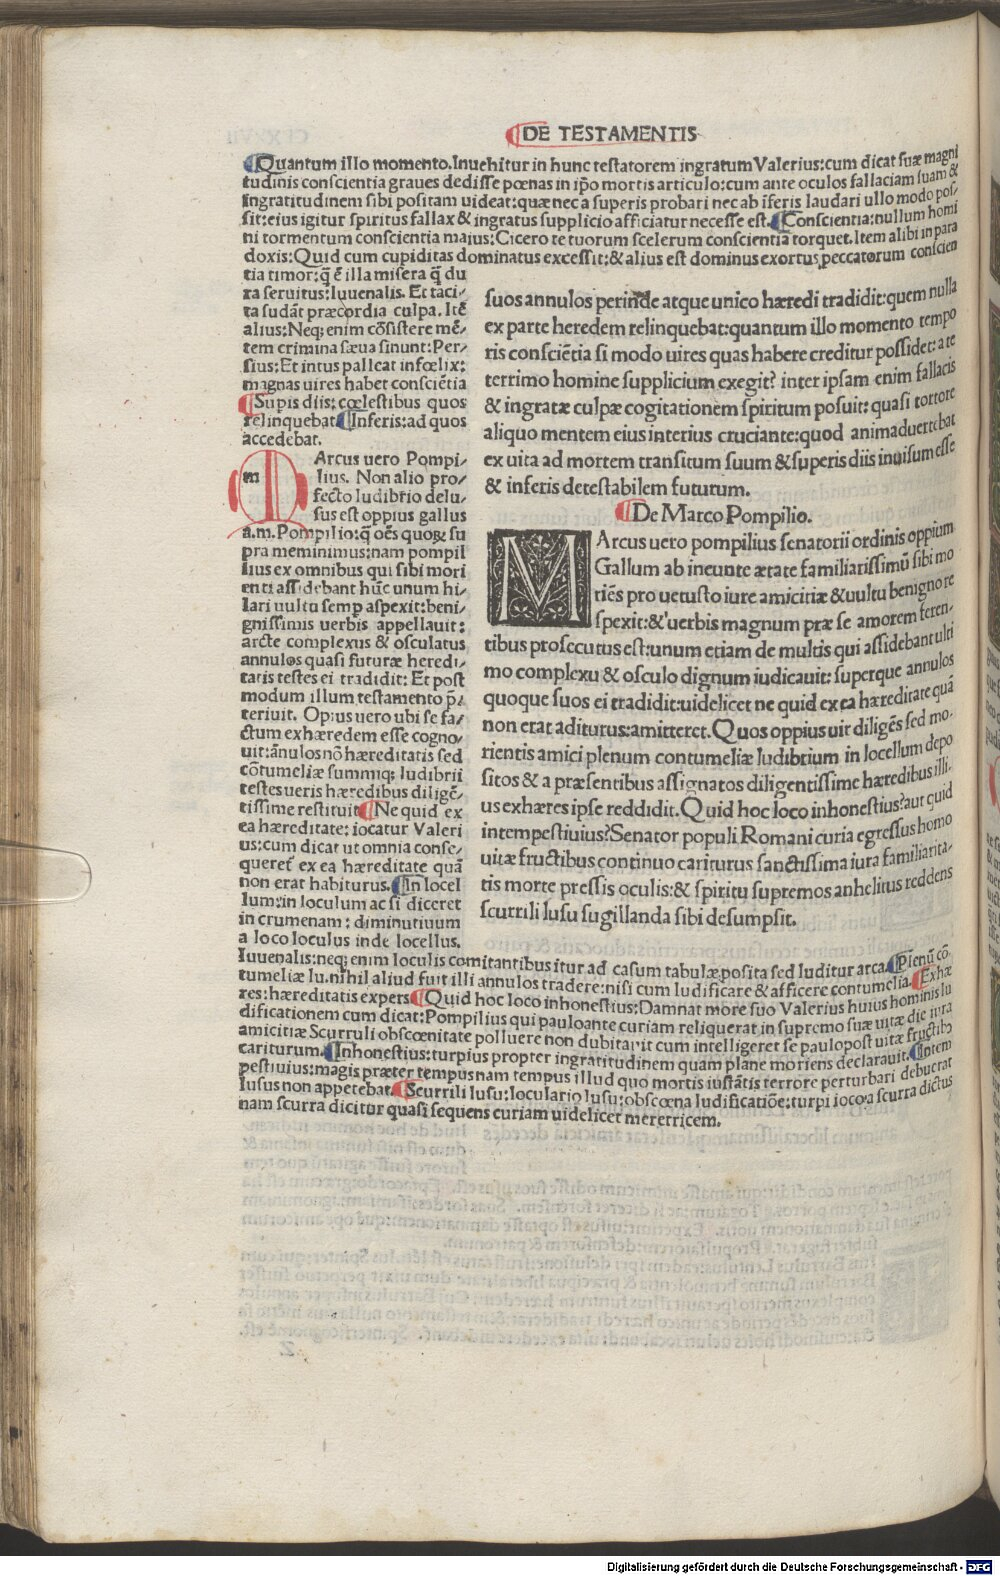 DE TESTAMENTIS
Quantum illo momento. Inuehitur in hunc testatorem ingratum Valerius: cum dicat suæ magni
tudinis conscientia graues dedisse pœnas in ip̄o mortis articulo: cum ante oculos fallaciam suam &
ingratitudinem sibi positam uideat: quæ nec a superis probari nec ab īferis laudari ullo modo pos/
sit: eius igitur spiritus fallax & ingratus supplicio afficiatur necesse est. Conscientia: nullum homi
ni tormentum conscientia maius: Cicero te tuorum scelerum conscientia torquet. Item alibi in para
doxis: Quid cum cupiditas dominatus excessit: & alius est dominus exortus peccatorum conscien
tia timor: q̄ ē illa misera q̄ du
ra seruitus: Iuuenalis. Et taci/
ta sudāt præcordia culpa. Itē
alius: Neq; enim cōsistere mē/
tem crimina sæua sinunt: Per/
sius: Et intus palleat infœlix:
magnas uires habet consciētia
Supis diis: cœlestibus quos
relinquebat Inferis: ad quos
accedebat.
m Arcus uero Pompi/
lius. Non alio pro/
fecto ludibrio delu/
sus est oppius gallus
a.m. Pompilio: q̄ oēs quoꝝ su
pra meminimus: nam pompil
lius ex omnibus qui sibi mori
enti assidebant hūc unum hi/
lari uultu semp aspexit: beni/
gnissimis uerbis appellauit:
arcte complexus & osculatus
annulos quasi futuræ heredi/
tatis testes ei tradidit: Et post
modum illum testamento p̄/
teriuit. Opius uero ubi se fa/
ctum exhæredem esse cogno/
uit: ānulos nō hæreditatis sed
cōtumeliæ summiq; ludibrii
testes ueris hæredibus diligē/
tissime restituit Ne quid ex
ea hæreditate: iocatur Valeri
us: cum dicat ut omnia conse/
queret̄ ex ea hæreditate quā
non erat habiturus. In locel
lum: in loculum ac si diceret
in crumenam: diminutiuum
a loco loculus inde locellus.
suos annulos perinde atque unico hæredi tradidit: quem nulla
ex parte heredem relinquebat: quantum illo momento tempo
ris consciētia si modo uires quas habere creditur possidet: a te
terrimo homine supplicium exegit? inter ipsam enim fallacis
& ingratæ culpæ cogitationem spiritum posuit: quasi tortore
aliquo mentem eius interius cruciante: quod animaduertebat
ex uita ad mortem transitum suum & superis diis inuisum esse
& inferis detestabilem futurum.
De Marco Pompilio.
MArcus uero pompilius senatorii ordinis oppium
Gallum ab ineunte ætate familiarissimū sibi mo
riēs pro uetusto iure amicitiæ & uultu benigno re
spexit: & uerbis magnum præ se amorem feren-
tibus prosecutus est: unum etiam de multis qui assidebant ulti
mo complexu & osculo dignum iudicauit: superque annulos
quoque suos ei tradidit: uidelicet ne quid ex ea hæreditate quā
non erat aditurus: amitteret. Quos oppius uir diligēs sed mo-
rientis amici plenum contumeliæ ludibrium in locellum depo
sitos & a præsentibus assignatos diligentissime hæredibus illi-
us exhæres ipse reddidit. Quid hoc loco inhonestius? aut quid
intempestiuius? Senator populi Romani curia egressus homo
uitæ fructibus continuo cariturus sanctissima iura familiarita-
tis morte pressis oculis: & spiritu supremos anhelitus reddens
scurrili lusu sugillanda sibi desumpsit.
Iuuenalis: neq; enim loculis comitantibus itur ad casum tabulæ posita sed luditur arca. Plenū cō
tumeliæ lu. nihil aliud fuit illi annulos tradere: nisi cum ludificare & afficere contumelia. Exhæ
res: hæreditatis expers Quid hoc loco inhonestius: Damnat more suo Valerius huius hominis lu
dificationem cum dicat: Pompilius qui pauloante curiam reliquerat in supremo suæ uitæ die iura
amicitiæ Scurruli obscœnitate polluere non dubitauit cum intelligeret se paulopost uitæ fructibꝰ
cariturum. Inhonestius: turpius propter ingratitudinem quam plane moriens declarauit. Intem
pestiuius: magis præter tempus nam tempus illud quo mortis iustātis terrore perturbari debuerat
lusus non appetebat. Scurrili lusu: loculario lusu: obscœna ludificatiōe: turpi ioco a scurra dictus
nam scurra dicitur quasi sequens curiam uidelicet meretricem.
Digitalisierung gefördert durch die Deutsche Forschungsgemeinschaft - DFG